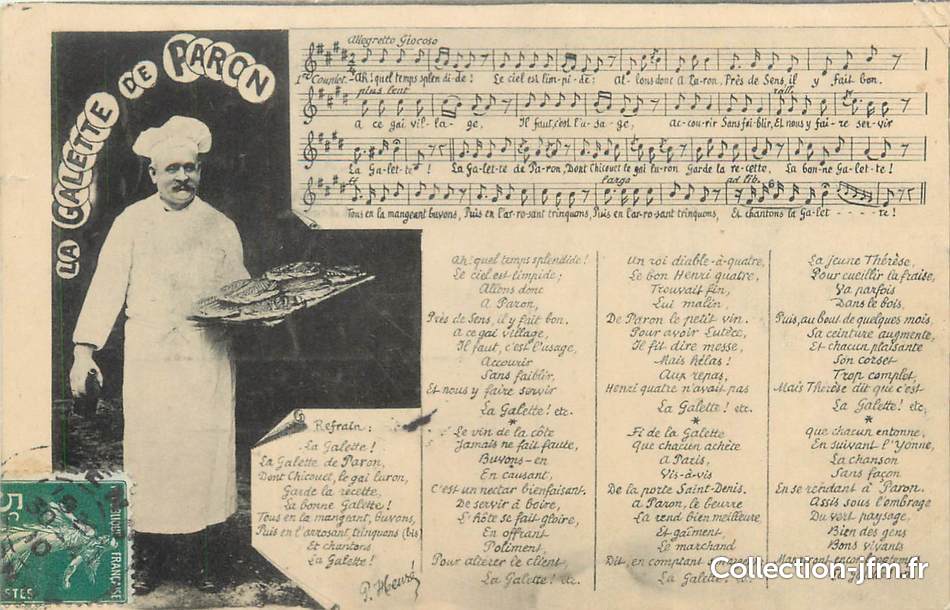 LA GALETTE DE PARON
Allegretto Giocoso
1er Couplet. Ah! quel temps splen-di-de! Le ciel est lim-pi-de: Al-lons donc A Pa-ron, Près de Sens, il y fait bon.
plus lent
rall.
A ce gai vil-la-ge, Il faut, c'est l'u-sa-ge, ac-cou-rir Sans fai-blir, Et nous y fai-re ser-vir
La Ga-let-te! La Ga-let-te de Pa-ron, Dont Chicouet le gai lu-ron Garde la re-cette, La bon-ne Ga-let-te!
largo
ad lib.
Tous en la mangeant buvons, Puis en l'ar-ro-sant trinquons, Puis en l'ar-ro-sant trinquons, Et chantons la Ga-let - - - - - te!
Ah! quel temps splendide!
Le ciel est limpide;
Allons donc
A Paron,
Près de Sens, il y fait bon.
A ce gai village,
Il faut, c'est l'usage,
Accourir
Sans faiblir,
Et nous y faire servir
La Galette! etc.
*
Le vin de la côte
Jamais ne fait faute,
Buvons-en
En causant,
C'est un nectar bienfaisant.
De servir à boire,
L'hôte se fait gloire,
En offrant
Poliment,
Pour altérer le client,
La Galette! etc.
Un roi diable-à-quatre,
Le bon Henri quatre,
Trouvait fin,
Lui malin,
De Paron le petit vin.
Pour avoir Lutèce,
Il fit dire messe,
Mais hélas!
Aux repas,
Henri quatre n'avait pas
La Galette! etc.
*
Fi de la Galette
Que chacun achète
A Paris,
Vis-à-vis
De la porte Saint-Denis.
A Paron, le beurre
La rend bien meilleure,
Et gaîment,
Le marchand
Dit, en comptant
La Galette! etc.
La jeune Thérèse,
Pour cueillir la fraise,
Va parfois
Dans le bois,
Puis, au bout de quelques mois,
Sa ceinture augmente,
Et chacun plaisante
Son corset
Trop complet,
Mais Thérèse dit que c'est
La Galette! etc,
*
Que chacun entonne,
En suivant l'Yonne,
La chanson
Sans façon
En se rendant à Paron.
Assis sous l'ombrage
Du vert paysage,
Bien des gens
Bons vivants
Refrain:
La Galette!
La Galette de Paron,
Dont Chicouet, le gai luron,
Garde la recette,
La bonne Galette!
Tous en la mangeant, buvons,
Puis en l'arrosant, trinquons (bis)
Et chantons
La Galette!
5c
POSTES
RÉPUBLIQUE FRANÇAISE
Collection-jfm.fr